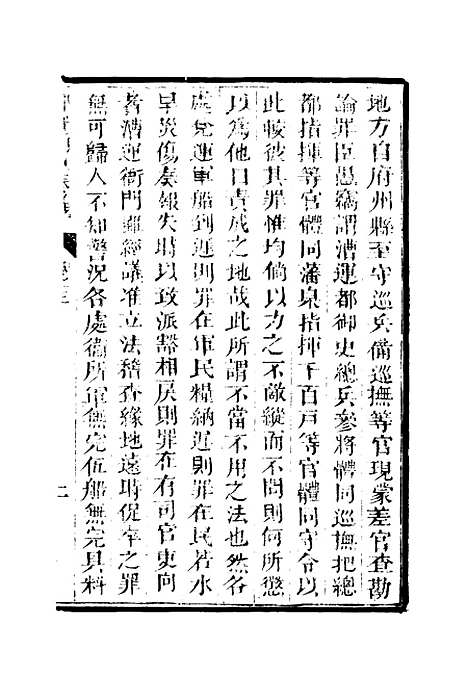 地方自府州縣至守巡兵備巡撫等官現蒙差官查勘
論罪臣愚竊謂漕運都御史總兵參將體同巡撫把總
都指揮等官體同藩臬指揮千百戶等官體同守令以
此較彼其罪惟均倘以力之不敵縱而不問則何所懲
以爲他日責成之地哉此所謂不當不用之法也然各
處兌運軍船到遲則罪在軍民糧納遲則罪在民若水
旱災傷奏報失時以致派豁相戾則罪在有司官吏向
者漕運衙門雖經議准立法稽查緣地遠時促卒之罪
無可歸人不知警況各處衛所軍無完伍船無完具料
卷三
二